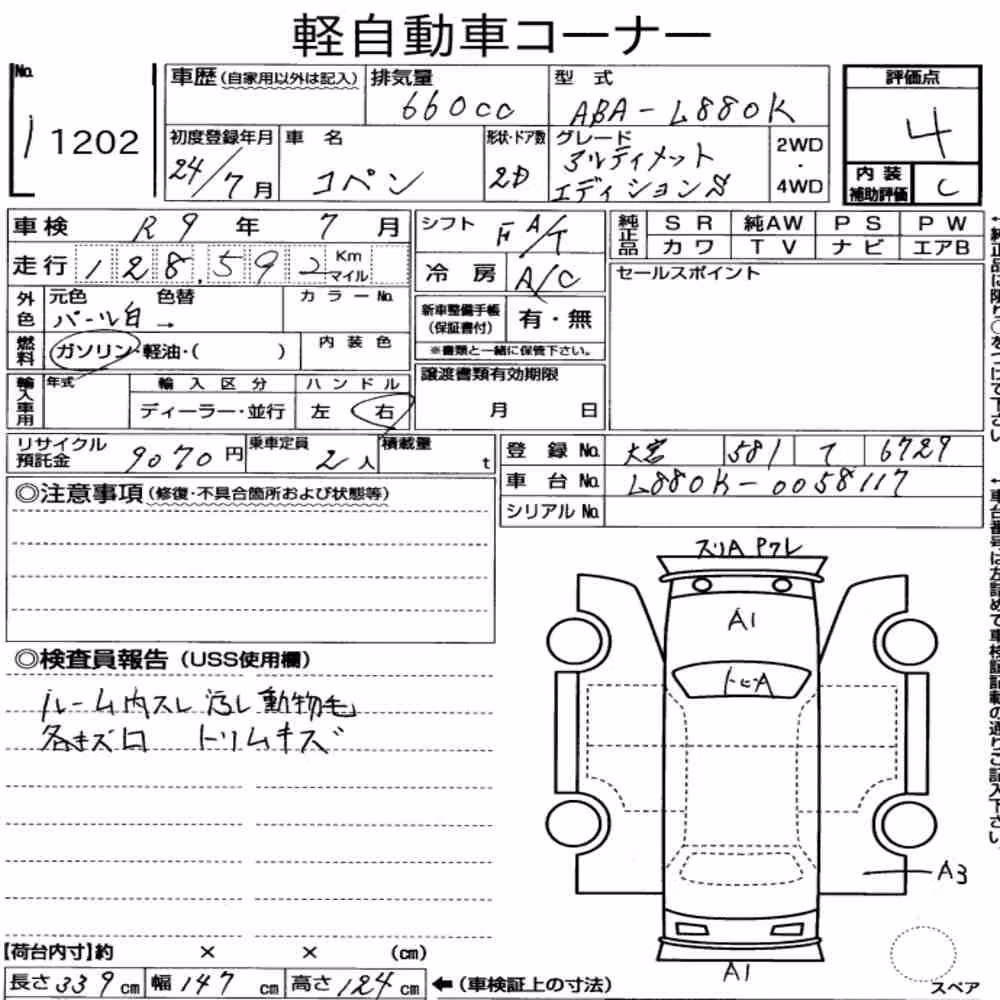 軽自動車コーナー
No.
1 1202
車歴 (自家用以外は記入)
排気量
660cc
型式
ABA-L880K
評価点
4
内装
補助評価
C
初度登録年月
24/7月
車名
コペン
形状・ドア数
2D
グレード
アルティメット
エディションS
2WD
・
4WD
車検 R9年 7月
走行 128,592 Km
マイル
シフト F A/T
冷房 A/C
純正品
SR 純AW PS PW
カワ TV ナビ エアB
セールスポイント
外色
元色 色替
パール白→
カラーNo.
燃料
ガソリン・軽油・( )
内装色
新車整備手帳
(保証書付)
有・無
※書類と一緒に保管下さい。
輸入車用
年式
輸入区分
ディーラー・並行
ハンドル
左 右
譲渡書類有効期限
月 日
リサイクル
預託金
9070円
乗車定員
2人
積載量
t
登録No. 大宮 581 て 6729
車台No. L880K-0058117
シリアルNo.
◎注意事項(修復・不具合箇所および状態等)
◎検査員報告(USS使用欄)
ルーム内スレ 汚レ 動物毛
各キズ凹 トリムキズ
スリA Pワレ
A1
トビA
A3
A1
スペア
【荷台内寸】約 × × (cm)
長さ339cm 幅147cm 高さ124cm ←(車検証上の寸法)
←純正品に限り○をつけて下さい。
←車台番号は左詰めで車検証記載の通りご記入下さい。